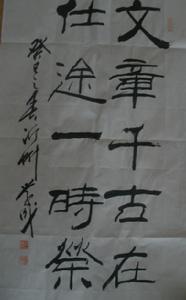 文章千古在
仕途一時榮
癸巳之春沂州